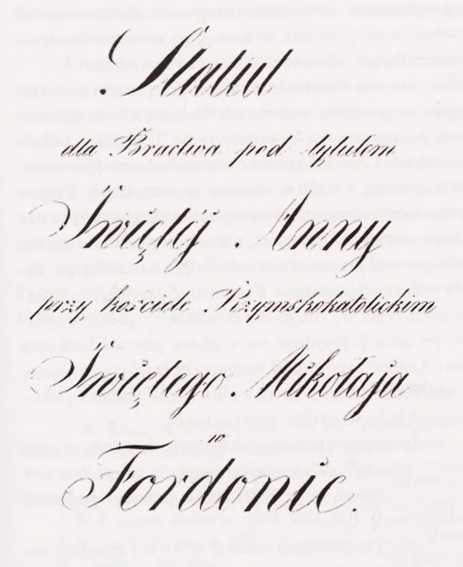 Statut
dla Bractwa pod tytułem
Świętej Anny
przy kościele Rzymskokatolickim
Świętego Mikołaja
w
Fordonie.